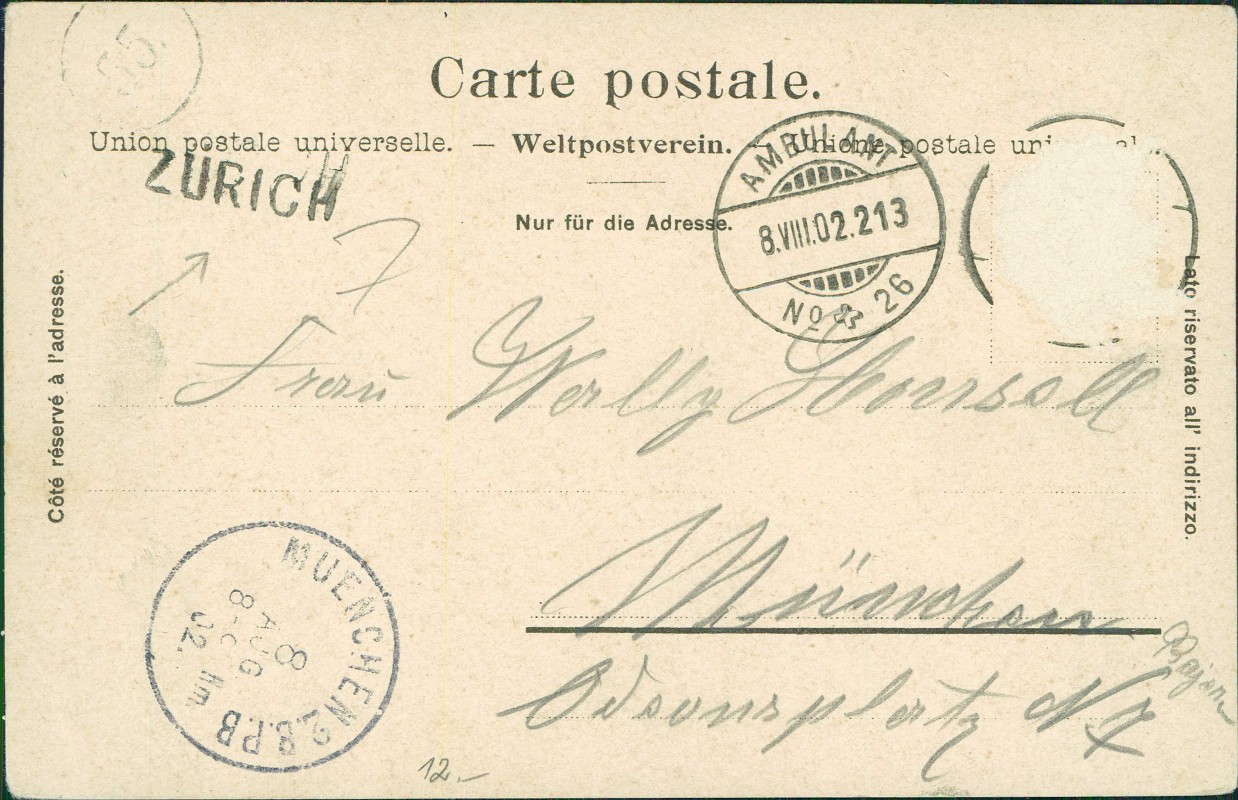 Carte postale.
Union postale universelle. — Weltpostverein. — Unione postale
ZURICH
Nur für die Adresse.
AMBULANT
8.VIII.02.213
No 26
Côté réservé à l'adresse.
Lato riservato all' indirizzo.
7
Frau Wally
München
MUENCHEN 2.B.P.B
8
AUG
02. Nm.
12.-